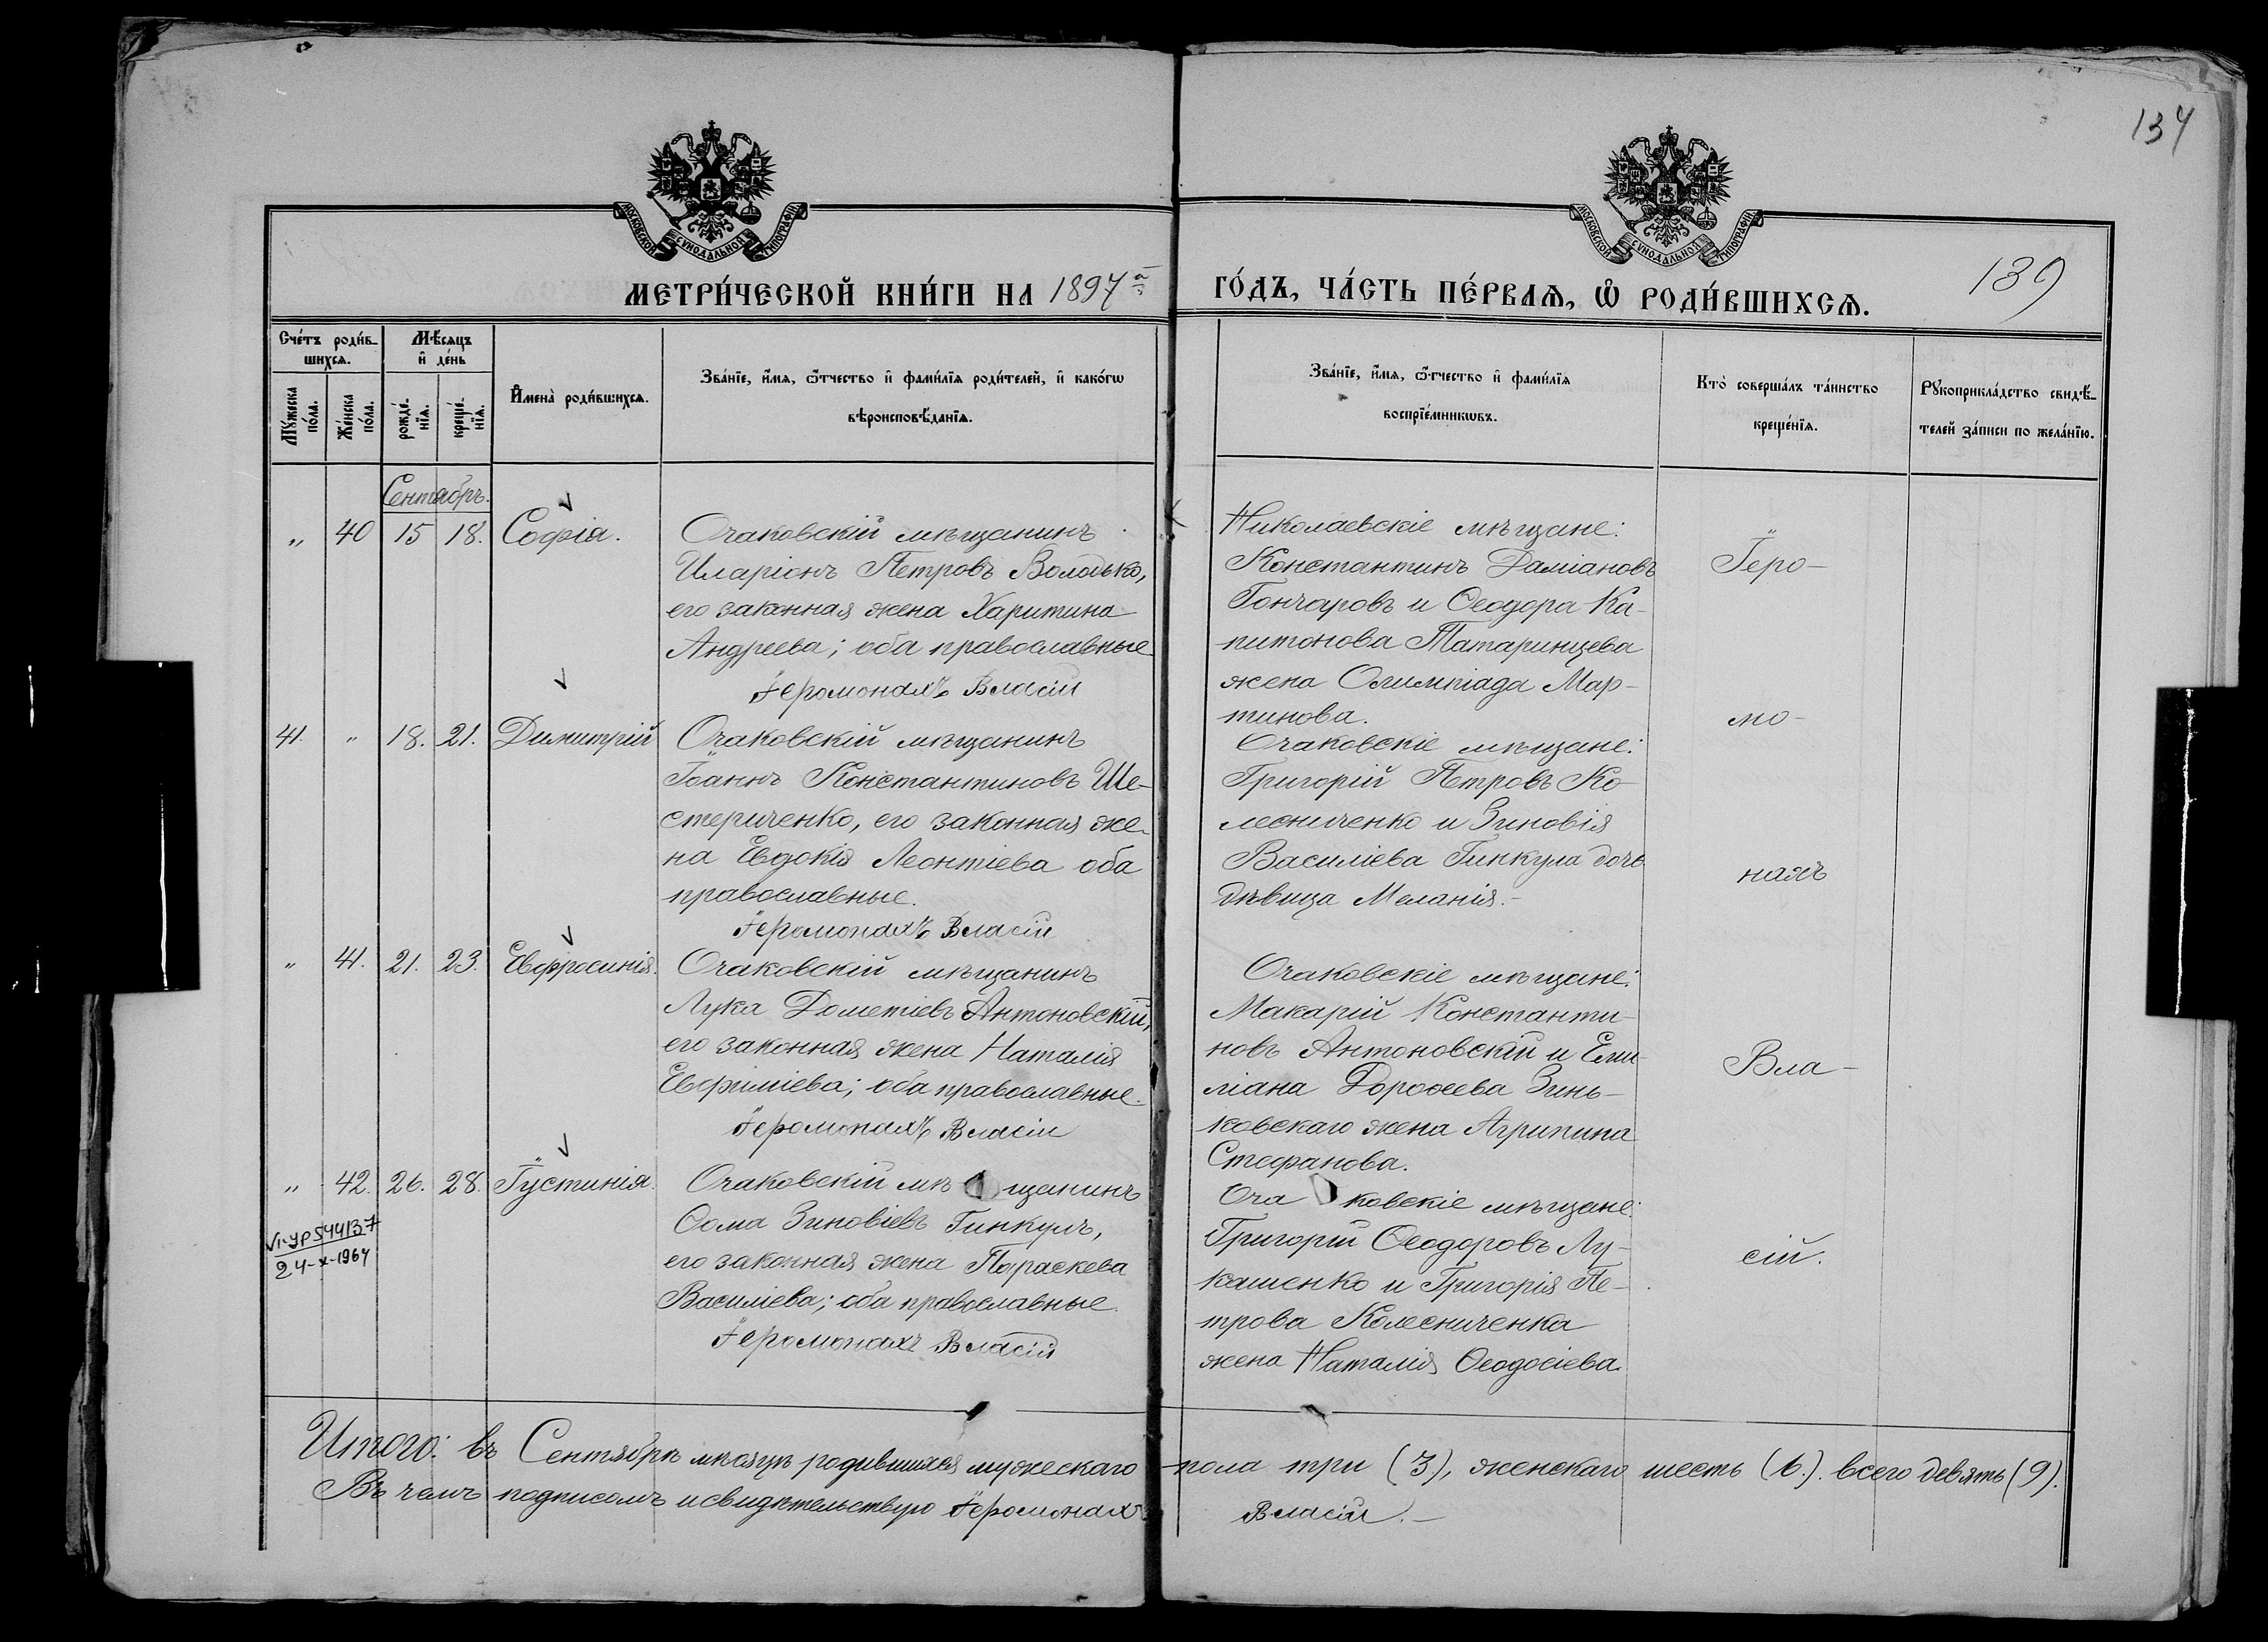 134
МОСКОВСКОЙ СѴНОДАЛЬНОЙ ТИПОГРАФІИ
МОСКОВСКОЙ СѴНОДАЛЬНОЙ ТИПОГРАФІИ
МЕТРИ́ЧЕСКОЙ КНИ́ГИ НА 1897й
ГО́ДЪ, ЧА́СТЬ ПЕ́РВАѦ, Ѽ РОДИ́ВШИХСѦ.
139
Сче́тъ роди́в-
шихсѧ.
Мѣ́сѧцъ
и҆ де́нь
Мꙋ́жеска
по́ла.
Же́нска
по́ла.
рожде́-
нїѧ.
креще́-
нїѧ.
И҆мена̀ роди́вшихсѧ.
Зва́нїе, и҆́мѧ, ѻ҆́тчество и҆ фами́лїѧ роди́телей, и҆ како́гѡ
вѣроисповѣ́данїѧ.
Зва́нїе, и҆́мѧ, ѻ҆́тчество и҆ фами́лїѧ
воспрїе́мникѡвъ.
Кто̀ соверша́лъ та́инство
креще́нїѧ.
Рꙋкоприкла́дство свидѣ́-
телей за́писи по жела́нїю.
Сентябрь.
„ 40 15 18. Софія.
Очаковскій мѣщанинъ
Иларіонъ Петровъ Володько,
его законная жена Харитина
Андреева; оба православные
Іеромонахъ Власій
Николаевскіе мѣщане:
Константинъ Даміановъ
Гончаровъ и Ѳеодора Ка-
питонова Татаринцева
жена Олимпіада Мар-
тинова.
Іеро-
41. „ 18. 21. Димитрій
Очаковскій мѣщанинъ
Іоаннъ Константиновъ Ше-
стериченко, его законная же-
на Евдокія Леонтіева оба
православные.
Іеромонахъ Власій
Очаковскіе мѣщане:
Григорій Петровъ Ко-
лесниченко и Зиновія
Василіева Гинкула дочь
дѣвица Меланія.-
мо-
нахъ
„ 41. 21. 23. Евфросинія.
Очаковскій мѣщанинъ
Лука Дометіевъ Антоновскій,
его законная жена Наталія
Евфиміева; оба православные.
Іеромонахъ Власій
Очаковскіе мѣщане:
Макарій Константи-
новъ Антоновскій и Еми-
ліана Дороѳеева Зинь-
ковскаго жена Агрипина
Стефанова.
Вла-
„ 42. 26. 28. Іустинія.
VI-УР 544137
24-X-1964
Очаковскій мѣщанинъ
Ѳома Зиновіевъ Гинкулъ,
его законная жена Параскева
Василіева; оба православные.
Іеромонахъ Власій
Очаковскіе мѣщане:
Григорій Ѳеодоровъ Лу-
кашенко и Григорія Пе-
трова Колесниченка
жена Наталія Ѳеодосіева.
сій.
Итого: въ Сентябрѣ мѣсяцѣ родившихся мужескаго пола три (3), женскаго шесть (6). всего девять (9).
Въ чемъ подписомъ и свидѣтельствую Іеромонахъ Власій.-